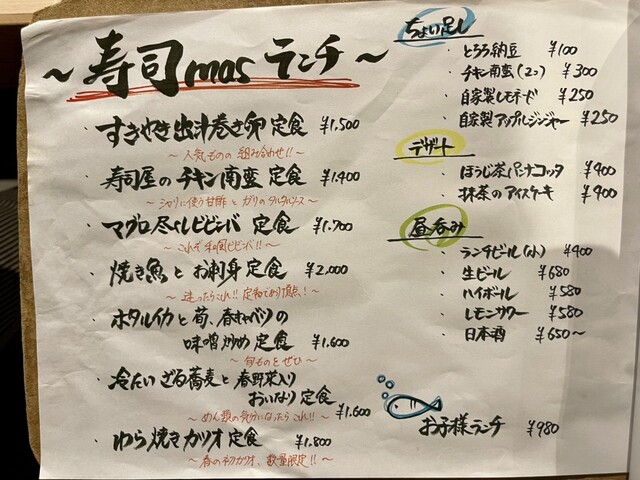 ～寿司mas ランチ～
・すきやき出汁巻き卵 定食 ¥1,500
～人気ものの組み合わせ!!～
・寿司屋のチキン南蛮 定食 ¥1,400
～シャリに使う甘酢とガリのタルタルソース～
・マグロ尽くしビビンバ 定食 ¥1,700
～これぞ和風ビビンバ!!～
・焼き魚とお刺身 定食 ¥2,000
～迷ったらこれ!!定食での頂点!～
・ホタルイカと筍、春キャベツの
味噌炒め 定食 ¥1,600
～旬ものをぜひ～
・冷たいざる蕎麦と春野菜入り
おいなり 定食 ¥1,600
～めん類の気分になったらこれ!!～
・わら焼きカツオ 定食 ¥1,800
～春の初カツオ、数量限定!!～
ちょい足し
・とろろ納豆 ¥100
・チキン南蛮(2つ) ¥300
・自家製レモネード ¥250
・自家製アップルジンジャー ¥250
デザート
・ほうじ茶パンナコッタ ¥400
・抹茶のアイスケーキ ¥400
昼呑み
・ランチビール(小) ¥400
・生ビール ¥680
・ハイボール ¥580
・レモンサワー ¥580
・日本酒 ¥650～
お子様ランチ ¥980